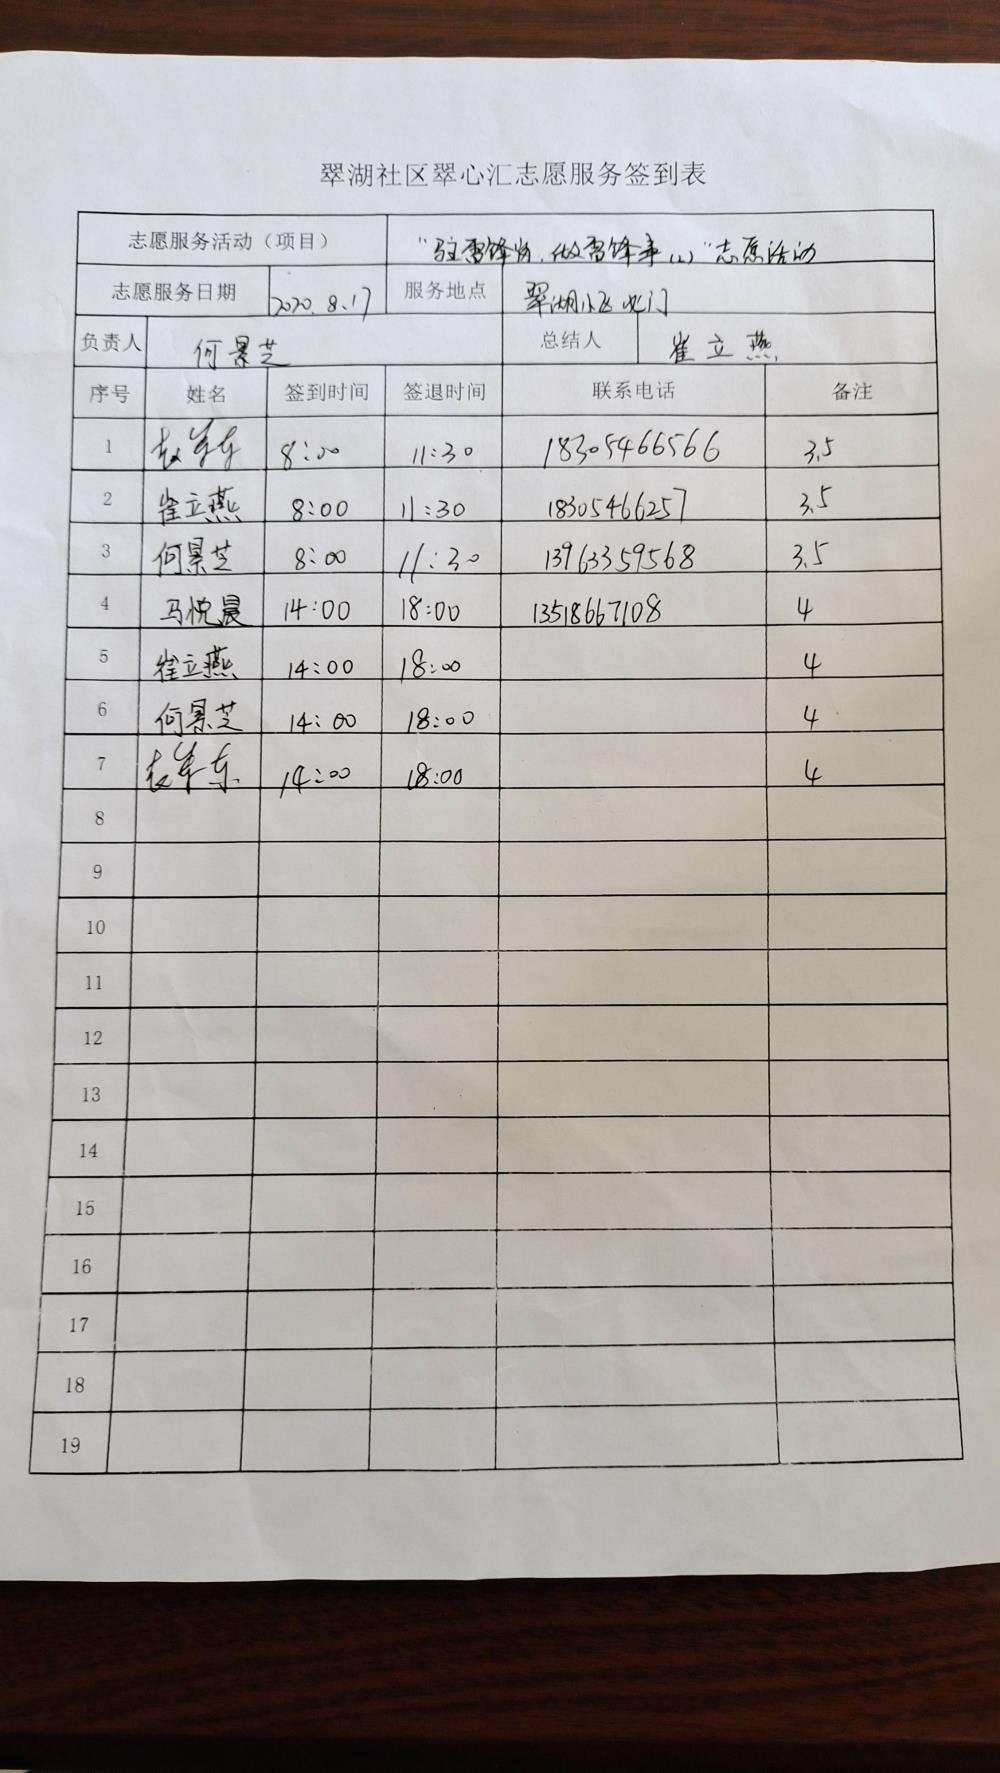 翠湖社区翠心汇志愿服务签到表
志愿服务活动（项目） "驻雷锋岗，做雷锋事（2）"志愿活动
志愿服务日期 2020.8.17 服务地点 翠湖小区北门
负责人 何景芝 总结人 崔立燕
序号 姓名 签到时间 签退时间 联系电话 备注
1 8:00 11:30 18305466566 3.5
2 崔立燕 8:00 11:30 18305466257 3.5
3 何景芝 8:00 11:30 13963359568 3.5
4 马悦晨 14:00 18:00 13518667108 4
5 崔立燕 14:00 18:00 4
6 何景芝 14:00 18:00 4
7 14:00 18:00 4
8
9
10
11
12
13
14
15
16
17
18
19